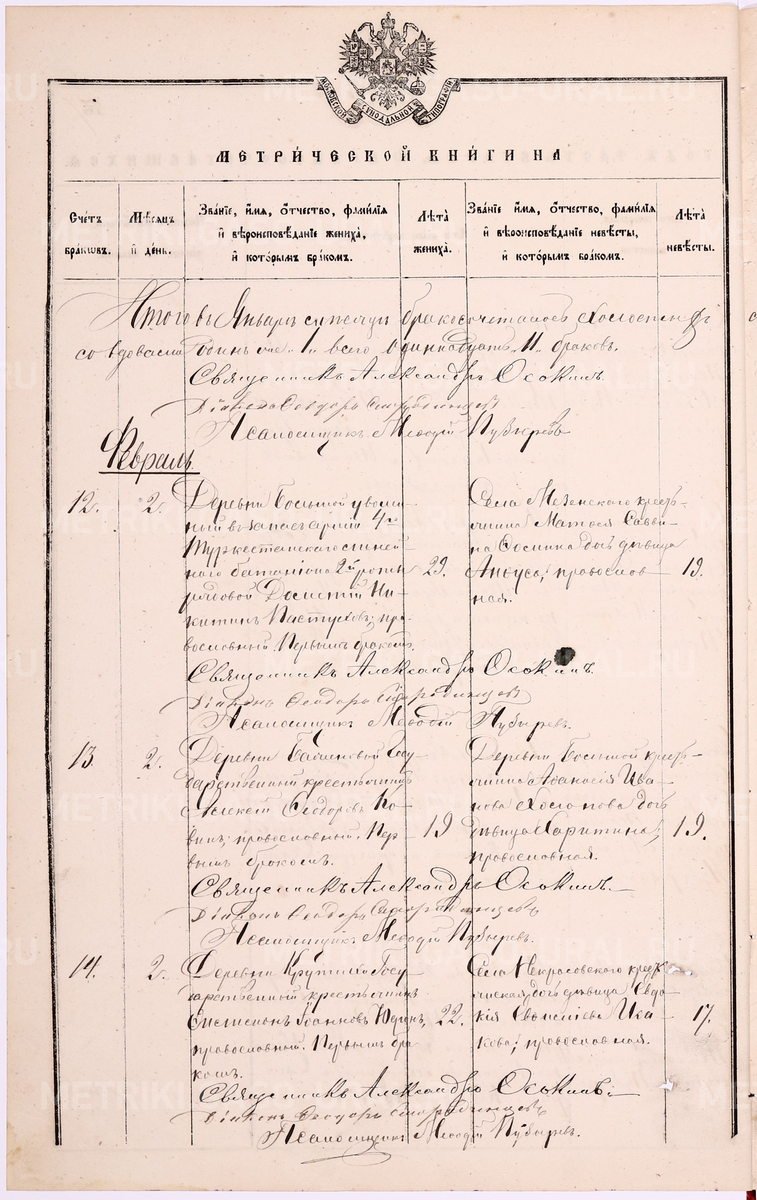 МОСКОВСКОЙ СИНОДАЛЬНОЙ ТИПОГРАФІИ
МЕТРИ́ЧЕСКОЙ КНИ́ГИ НА
Счетъ браковъ.
Мѣсяцъ и день.
Зва́ніе, и́мя, о́тчество, фами́лія и вѣроисповѣ́даніе жениха̀, и кото́рымъ бра́комъ.
Лѣ́та жениха̀.
Зва́ніе и́мя, о́тчество, фами́лія и вѣроисповѣ́даніе невѣ́сты, и кото́рымъ бра́комъ.
Лѣ́та невѣ́сты.
Итого въ Январѣ бракосочеталось
со вдовами одинъ 1. всего одиннадцать 11 браковъ.
Священникъ Александръ Осокинъ.
Діаконъ Ѳеодоръ
Псаломщикъ Меѳодій Пузыревъ
Февраль.
12. 2.
Деревни Большой уволен-
ный въ запасъ арміи 4го
Туркестанскаго линей-
наго баталіона 2й роты
рядовой Ни-
китинъ Пастуховъ, пра-
вославный. Первымъ бракомъ.
29.
Села Мезенского кресть-
янина Матѳея Савви-
на Соснина дочь дѣвица
Анѳуса, православ-
ная.
19.
Священникъ Александръ Осокинъ.
Діаконъ Ѳеодоръ
Псаломщикъ Меѳодій Пузыревъ.
13 2.
Деревни Госу-
дарственный крестьянинъ
Алексѣй Ѳеодоровъ
православный. Пер-
вымъ бракомъ.
19
Деревни Большой кресть-
янина Аѳанасія Ива-
нова дочь
дѣвица Харитина,
православная.
19.
Священникъ Александръ Осокинъ.
Діаконъ Ѳеодоръ
Псаломщикъ Меѳодій Пузыревъ.
14. 2.
Деревни Госу-
дарственный крестьянинъ
Іоанновъ Юдинъ,
православный. Первымъ бра-
комъ.
22.
Села Некрасовского кресть-
янская дочь дѣвица Евдо-
кія Ива-
кова, православная.
17.
Священникъ Александръ Осокинъ.
Діаконъ Ѳеодоръ
Псаломщикъ Меѳодій Пузыревъ.